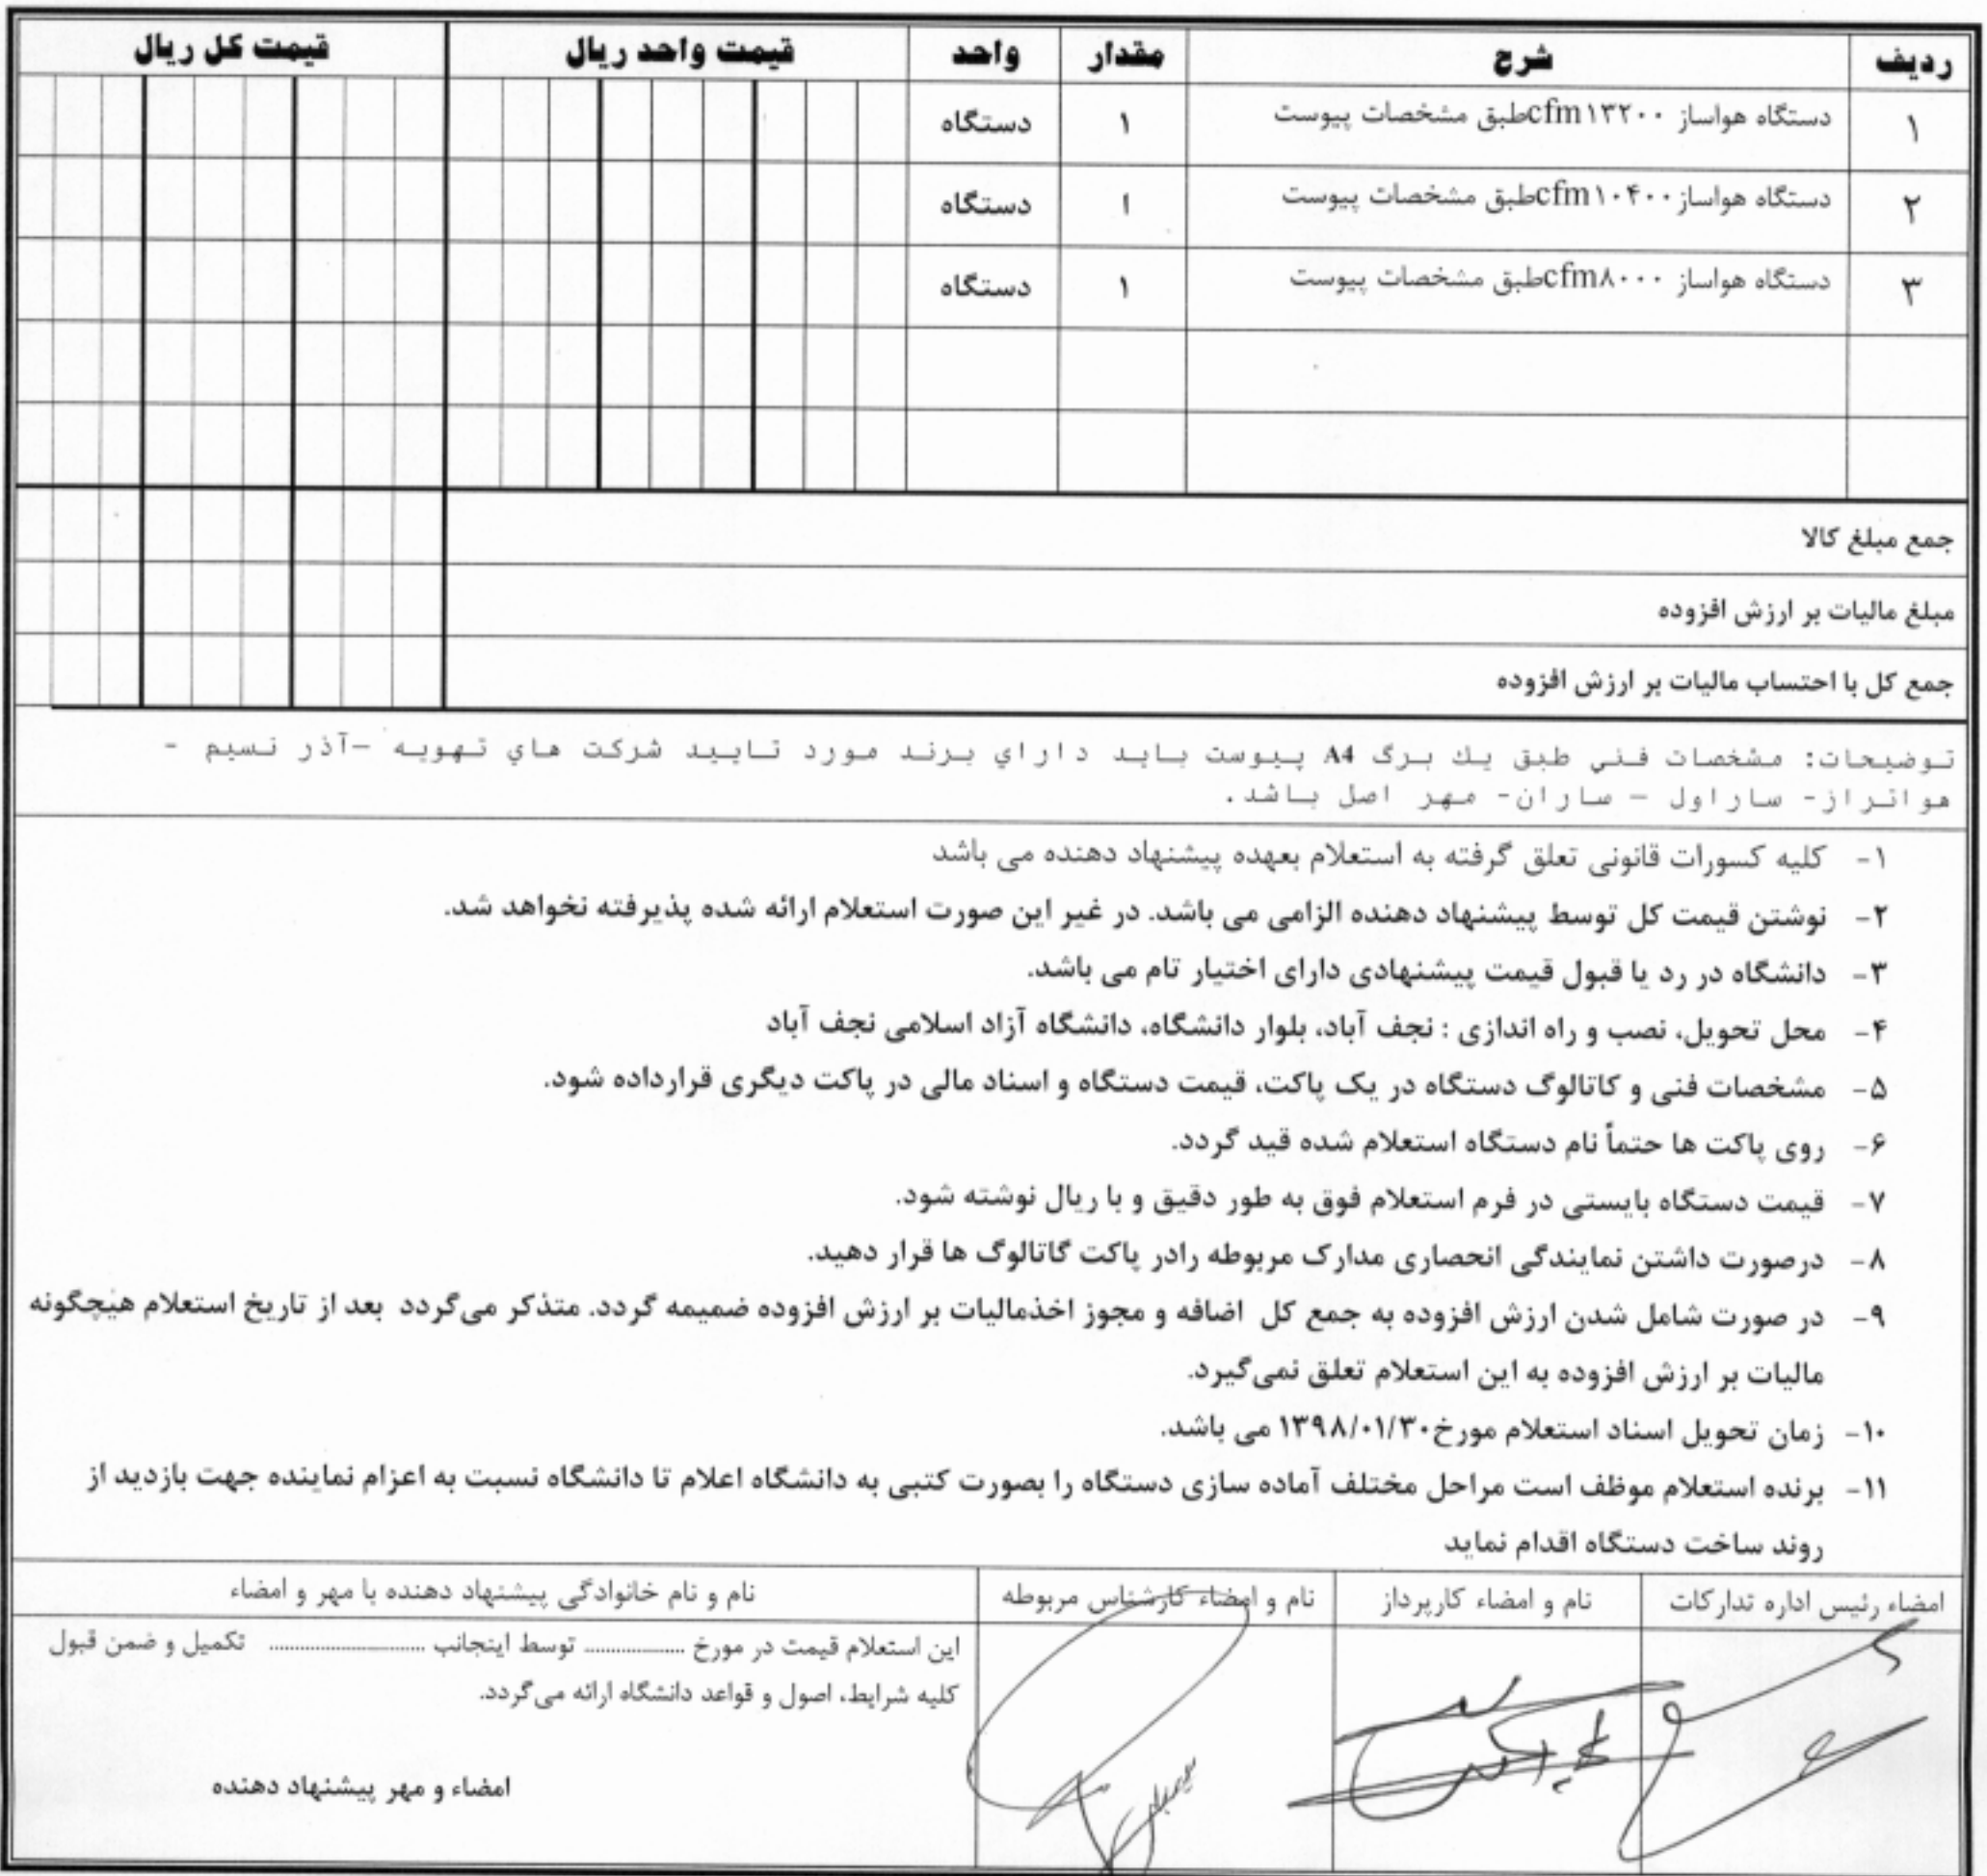 ردیف شرح مقدار واحد قیمت واحد ریال قیمت کل ریال
۱ دستگاه هواساز cfm۱۳۲۰۰طبق مشخصات پیوست ۱ دستگاه
۲ دستگاه هواساز cfm۱۰۴۰۰طبق مشخصات پیوست ۱ دستگاه
۳ دستگاه هواساز cfm۸۰۰۰طبق مشخصات پیوست ۱ دستگاه
جمع مبلغ کالا
مبلغ مالیات بر ارزش افزوده
جمع کل با احتساب مالیات بر ارزش افزوده
توضیحات: مشخصات فني طبق يك برگ A4 پيوست بايد داراي برند مورد تاييد شركت هاي تهويه –آذر نسيم -
هواتراز- ساراول – ساران- مهر اصل باشد.
۱- کلیه کسورات قانونی تعلق گرفته به استعلام بعهده پیشنهاد دهنده می باشد
۲- نوشتن قیمت کل توسط پیشنهاد دهنده الزامی می باشد. در غیر این صورت استعلام ارائه شده پذیرفته نخواهد شد.
۳- دانشگاه در رد یا قبول قیمت پیشنهادی دارای اختیار تام می باشد.
۴- محل تحویل، نصب و راه اندازی : نجف آباد، بلوار دانشگاه، دانشگاه آزاد اسلامی نجف آباد
۵- مشخصات فنی و کاتالوگ دستگاه در یک پاکت، قیمت دستگاه و اسناد مالی در پاکت دیگری قرارداده شود.
۶- روی پاکت ها حتماً نام دستگاه استعلام شده قید گردد.
۷- قیمت دستگاه بایستی در فرم استعلام فوق به طور دقیق و با ریال نوشته شود.
۸- درصورت داشتن نمایندگی انحصاری مدارک مربوطه رادر پاکت گاتالوگ ها قرار دهید.
۹- در صورت شامل شدن ارزش افزوده به جمع کل اضافه و مجوز اخذمالیات بر ارزش افزوده ضمیمه گردد. متذکر می‌گردد بعد از تاریخ استعلام هیچگونه
مالیات بر ارزش افزوده به این استعلام تعلق نمی‌گیرد.
۱۰- زمان تحویل اسناد استعلام مورخ۱۳۹۸/۰۱/۳۰ می باشد.
۱۱- برنده استعلام موظف است مراحل مختلف آماده سازی دستگاه را بصورت کتبی به دانشگاه اعلام تا دانشگاه نسبت به اعزام نماینده جهت بازدید از
روند ساخت دستگاه اقدام نماید
امضاء رئیس اداره تدارکات نام و امضاء کارپرداز نام و امضاء کارشناس مربوطه نام و نام خانوادگی پیشنهاد دهنده با مهر و امضاء
این استعلام قیمت در مورخ .................. توسط اینجانب ........................... تکمیل و ضمن قبول
کلیه شرایط، اصول و قواعد دانشگاه ارائه می‌گردد.
امضاء و مهر پیشنهاد دهنده